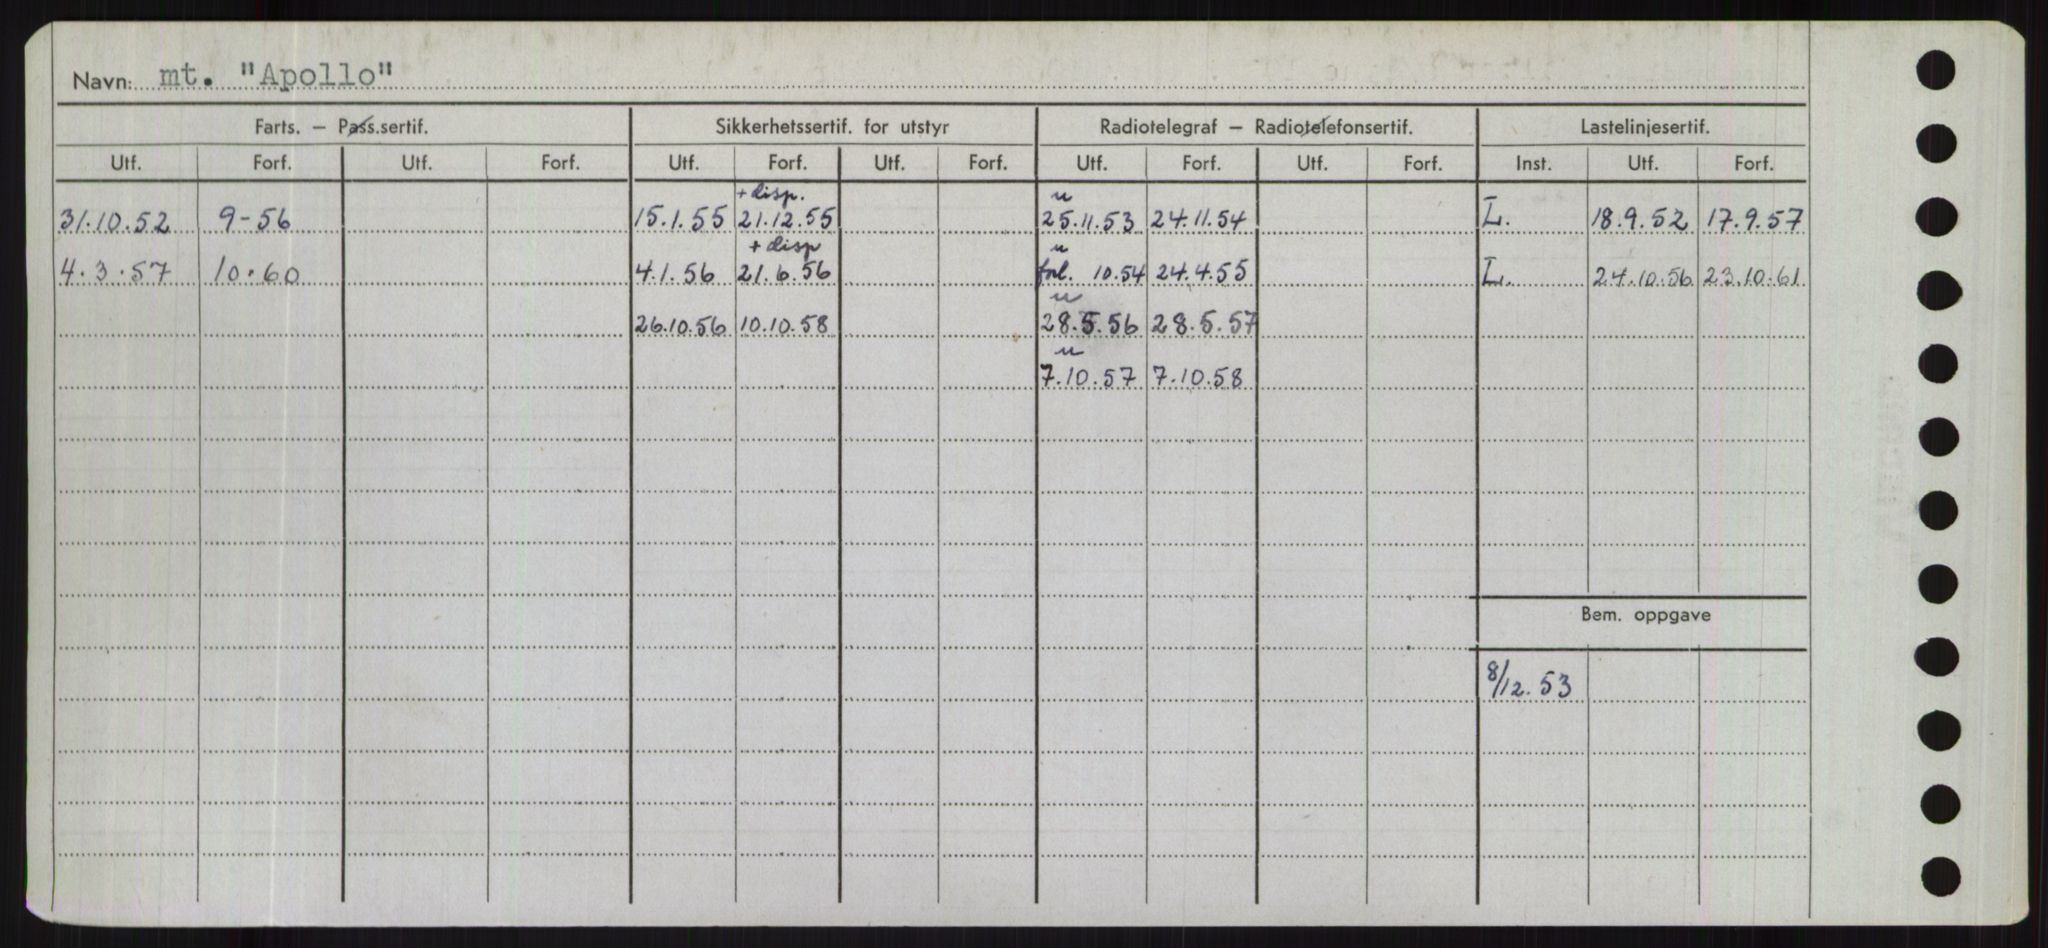 Navn: mt. "Apollo"
Farts. – Pass.sertif. Sikkerhetssertif. for utstyr Radiotelegraf – Radiotelefonsertif. Lastelinjesertif.
Utf. Forf. Utf. Forf. Utf. Forf. Utf. Forf. Utf. Forf. Utf. Forf. Inst. Utf. Forf.
+ disp. u
31.10.52 9-56 15.1.55 21.12.55 25.11.53 24.11.54 L. 18.9.52 17.9.57
+ disp u
4.3.57 10.60 4.1.56 21.6.56 forl. 10.54 24.4.55 L. 24.10.56 23.10.61
u
26.10.56 10.10.58 28.5.56 28.5.57
u
7.10.57 7.10.58
Bem. oppgave
8/12.53